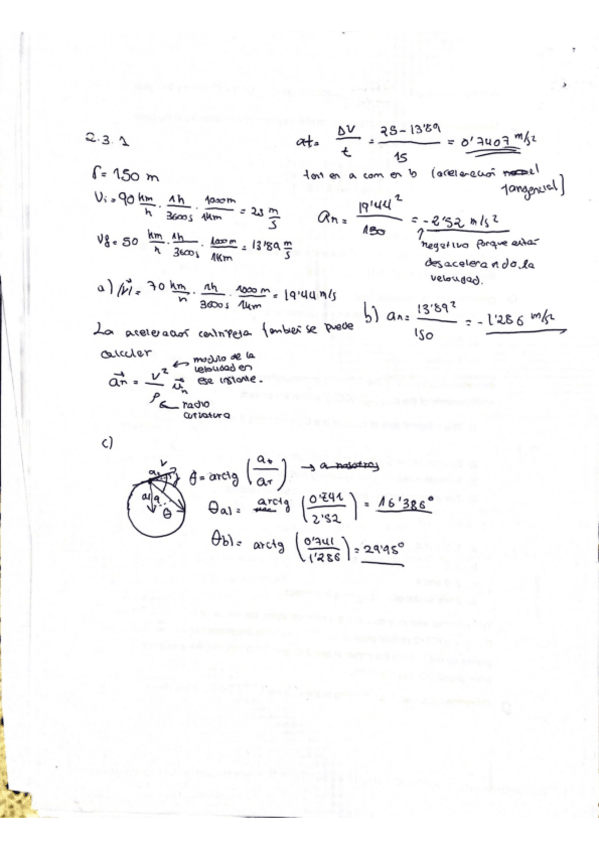 2.3.1
r = 150 m
Vi = 90 km/h · 1h/3600s · 1000m/1km = 25 m/s
Vf = 50 km/h · 1h/3600s · 1000m/1km = 13'89 m/s
a) |v⃗| = 70 km/h · 1h/3600s · 1000m/1km = 19'44 m/s
La aceleración centripeta tambien se puede
calcular
a⃗n = v²/ρ u⃗n
← modulo de la
velocidad en
ese instante.
← radio
curvatura
at = ΔV/t = 25-13'89/15 = 0'7407 m/s2
tan en a com en b (aceleración
tangencial)
an = 19'44²/150 = -2'52 m/s²
negativo porque estar
desacelerando la
velocidad.
b) an = 13'89²/150 = -1'286 m/s²
c)
V
θ
θ = arctg (at/ar) →
θa) = arctg (0'741/2'52) = 16'386°
θb) = arctg (0'741/1'286) = 29'95°